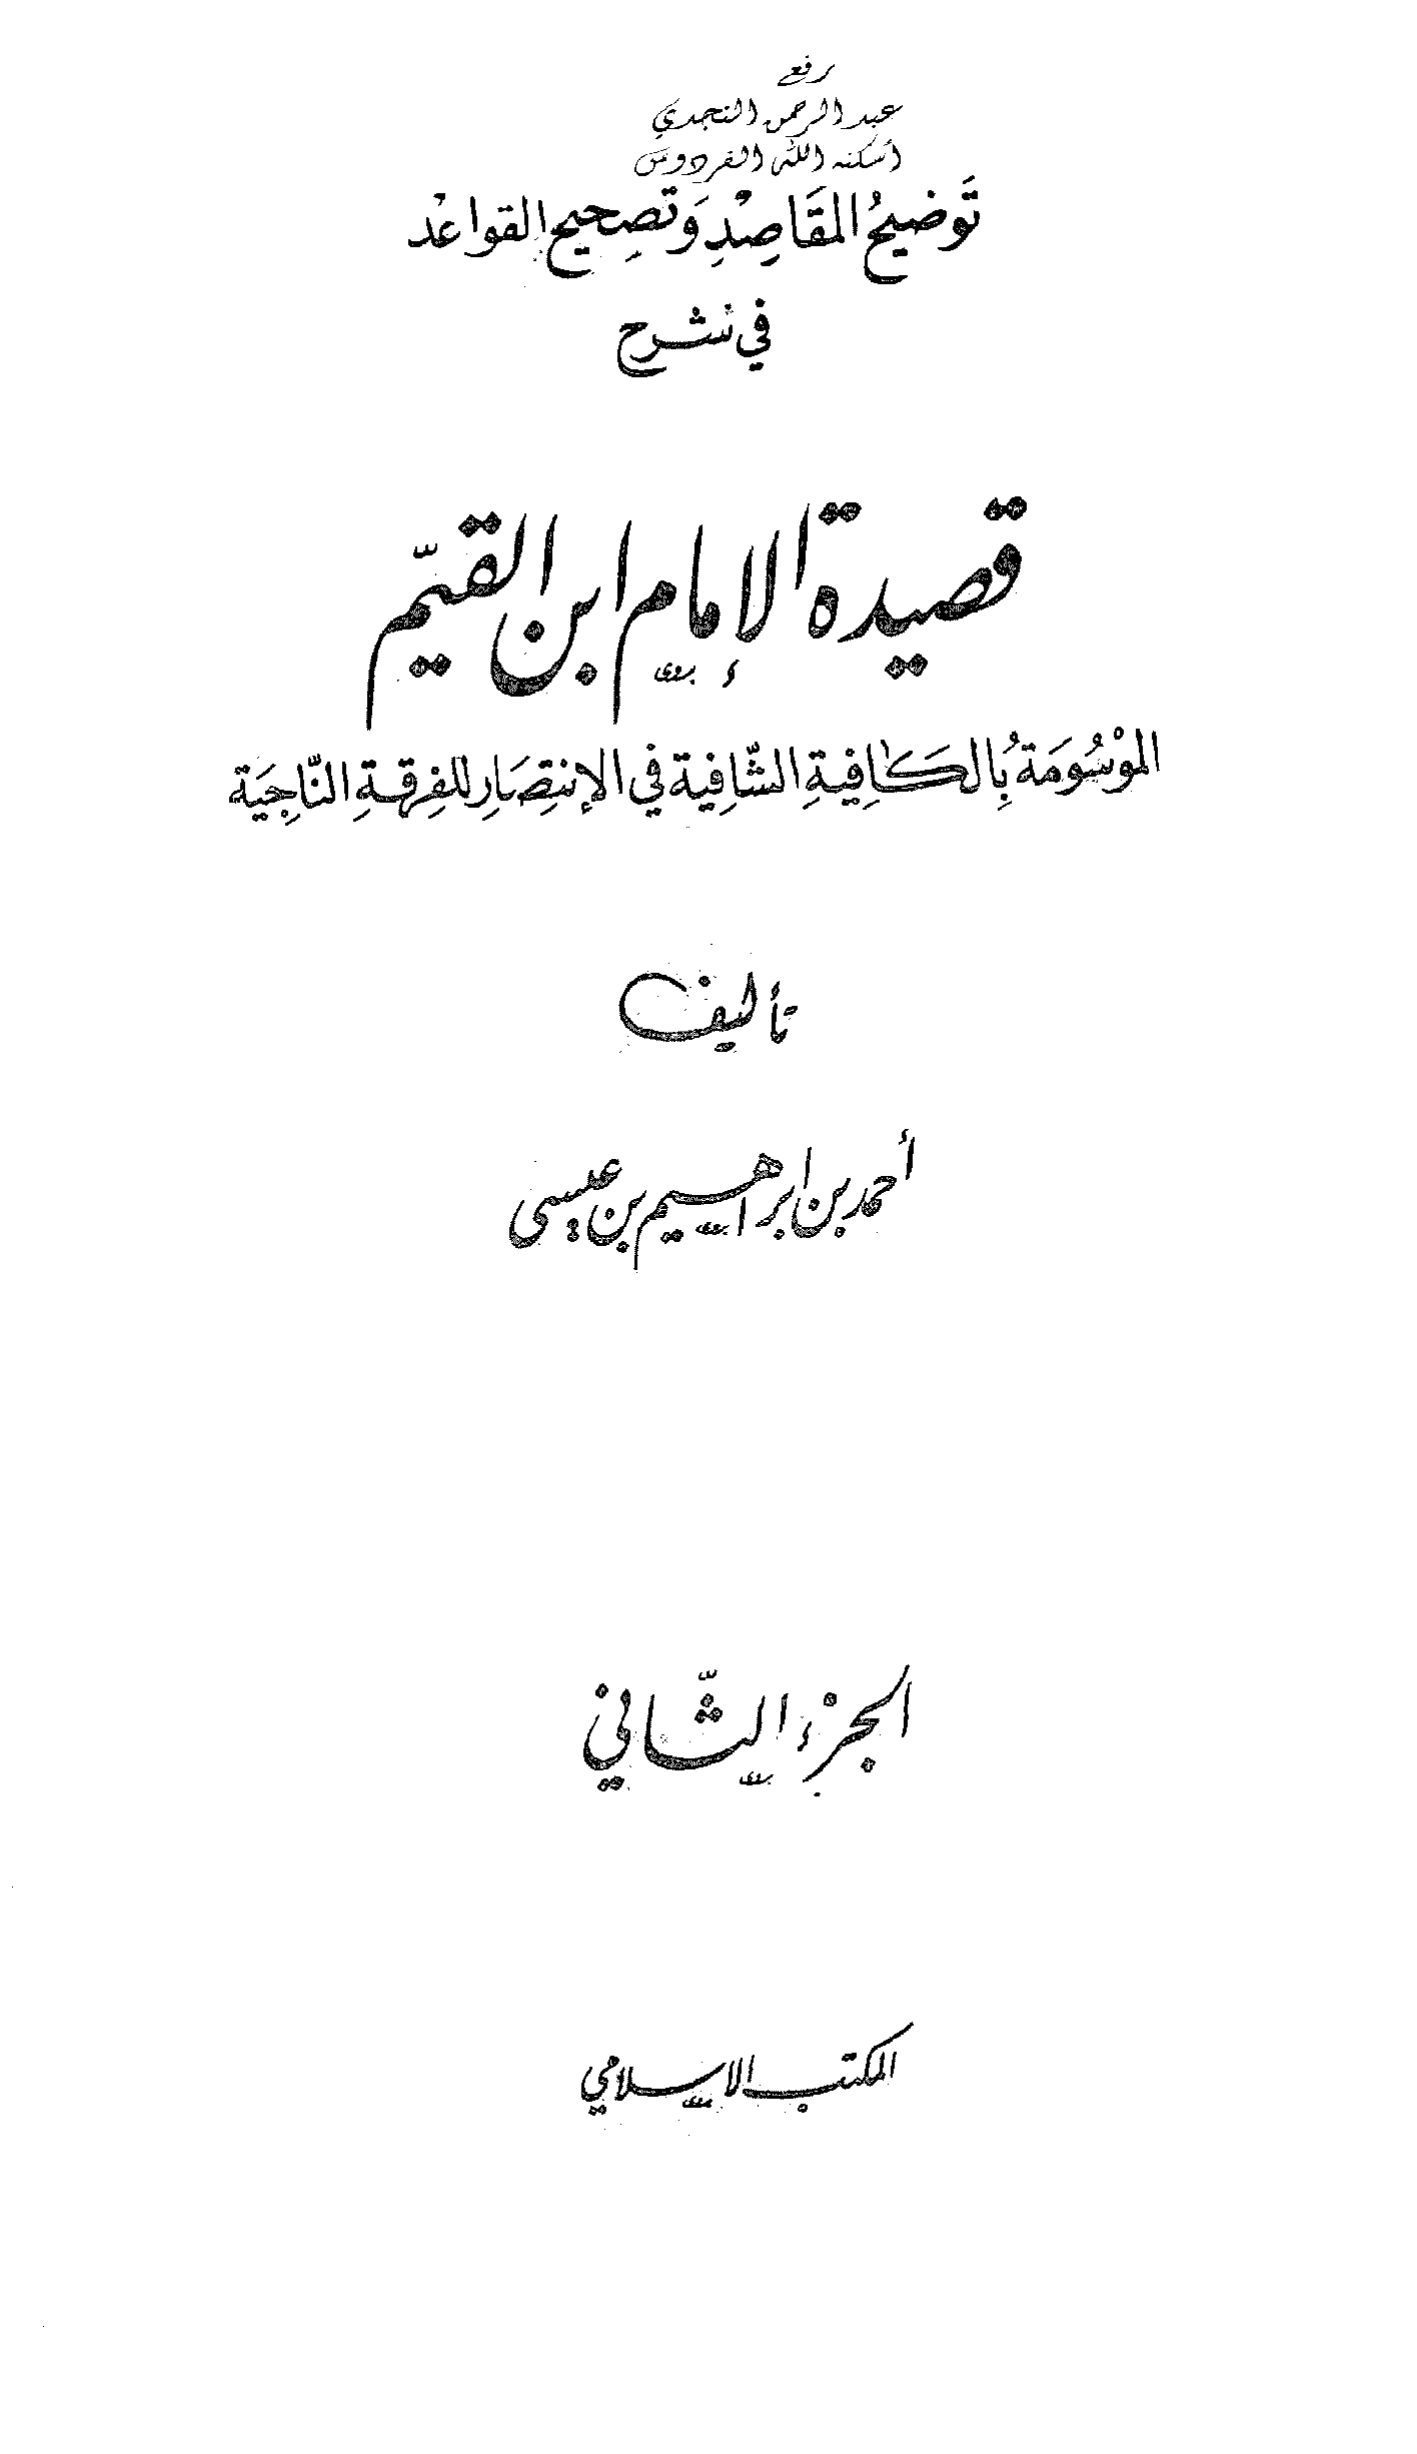 رفع
عبد الرحمن النجدي
أسكنه الله الفردوس
تَوضيحُ المقَاصِدِ وَتصحِيح القواعْد
في شرح
قصيدة الإمام ابن القيّم
الموْسُومَة بِالكَافِيةِ الشَّافِية في الإنتِصَارِ للفِرقةِ النَّاجِيَة
تأليف
أحمد بن ابراهيم بن عيسى
الجزء الثّاني
المكتب الاسلامي